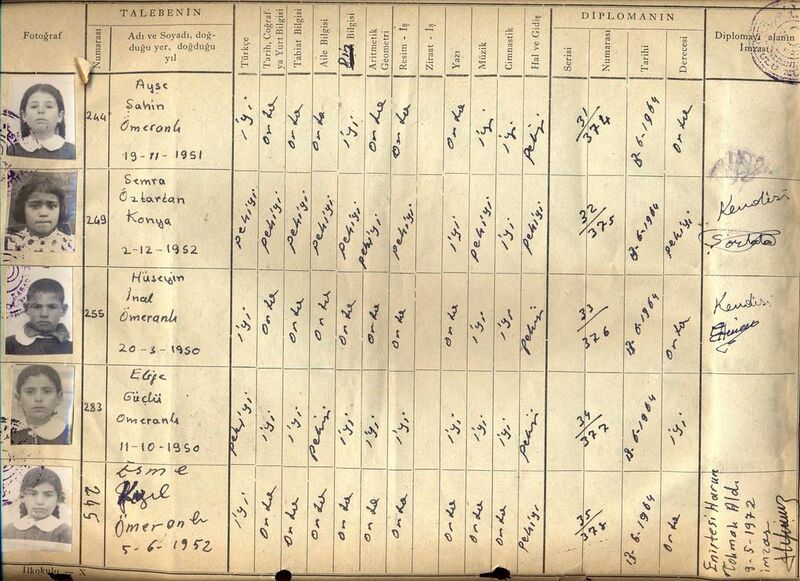 TALEBENİN
DİPLOMANIN
Fotoğraf
Numarası
Adı ve Soyadı, doğ-
duğu yer, doğduğu
yıl
Türkçe
Tarih, Coğraf-
ya Yurt Bilgisi
Tabiat Bilgisi
Aile Bilgisi
Bilgisi
Aritmetik
Geometri
Resim - İş
Ziraat - İş
Yazı
Müzik
Cimnastik
Hal ve Gidiş
Serisi
Numarası
Tarihi
Derecesi
Diplomayı alanın
İmzası
244
Ayşe
Şahin
Ömeranlı
19-11-1951
iyi
Orta
Orta
Orta
iyi
Orta
Orta
Orta
iyi
iyi
Pekiyi
31
374
8-6-1964
Orta
249
Semra
Öztartan
Konya
2-12-1952
Pekiyi
Pekiyi
Pekiyi
Pekiyi
Pekiyi
Pekiyi
Pekiyi
iyi
Pekiyi
iyi
Pekiyi
32
375
8-6-1964
Pekiyi
Kendisi
255
Hüseyin
İnal
Ömeranlı
20-3-1950
iyi
Orta
Orta
Orta
Orta
Orta
Orta
Orta
iyi
iyi
Pekiyi
33
376
8-6-1964
Orta
Kendisi
283
Elife
Güçlü
Omeranlı
11-10-1950
Pekiyi
iyi
iyi
Pekiyi
iyi
iyi
iyi
iyi
iyi
iyi
Pekiyi
34
377
8-6-1964
iyi
245
Esme
Kızıl
Ömeranlı
5-6-1952
iyi
Orta
Orta
Orta
Orta
Orta
Orta
Orta
Orta
Orta
Pekiyi
35
378
8-6-1964
Orta
Eniştesi Harun
Tokmak Aldı
9-5-1972
imzası
İlkokulu — X